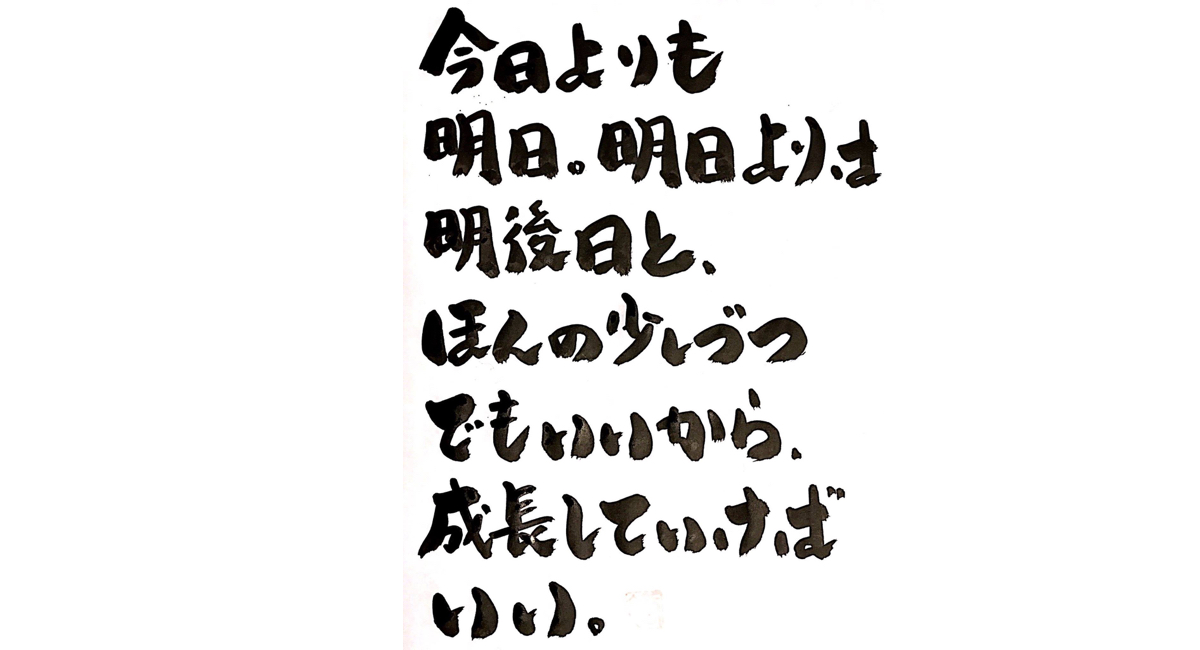 今日よりも
明日。明日よりは
明後日と、
ほんの少しづつ
でもいいから、
成長していけば
いい。